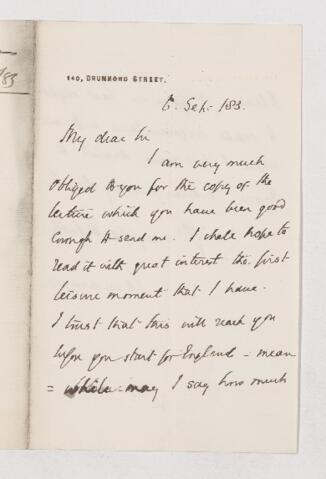 /83
140, DRUMMOND STREET.
6. Sep. /83.
My dear Sir
I am very much
obliged to you for the copy of the
lecture which you have been good
enough to send me. I shall hope to
read it with great interest the first
leisure moment that I have.
I trust that this will reach you
before you start for England – mean
= while may I say how much